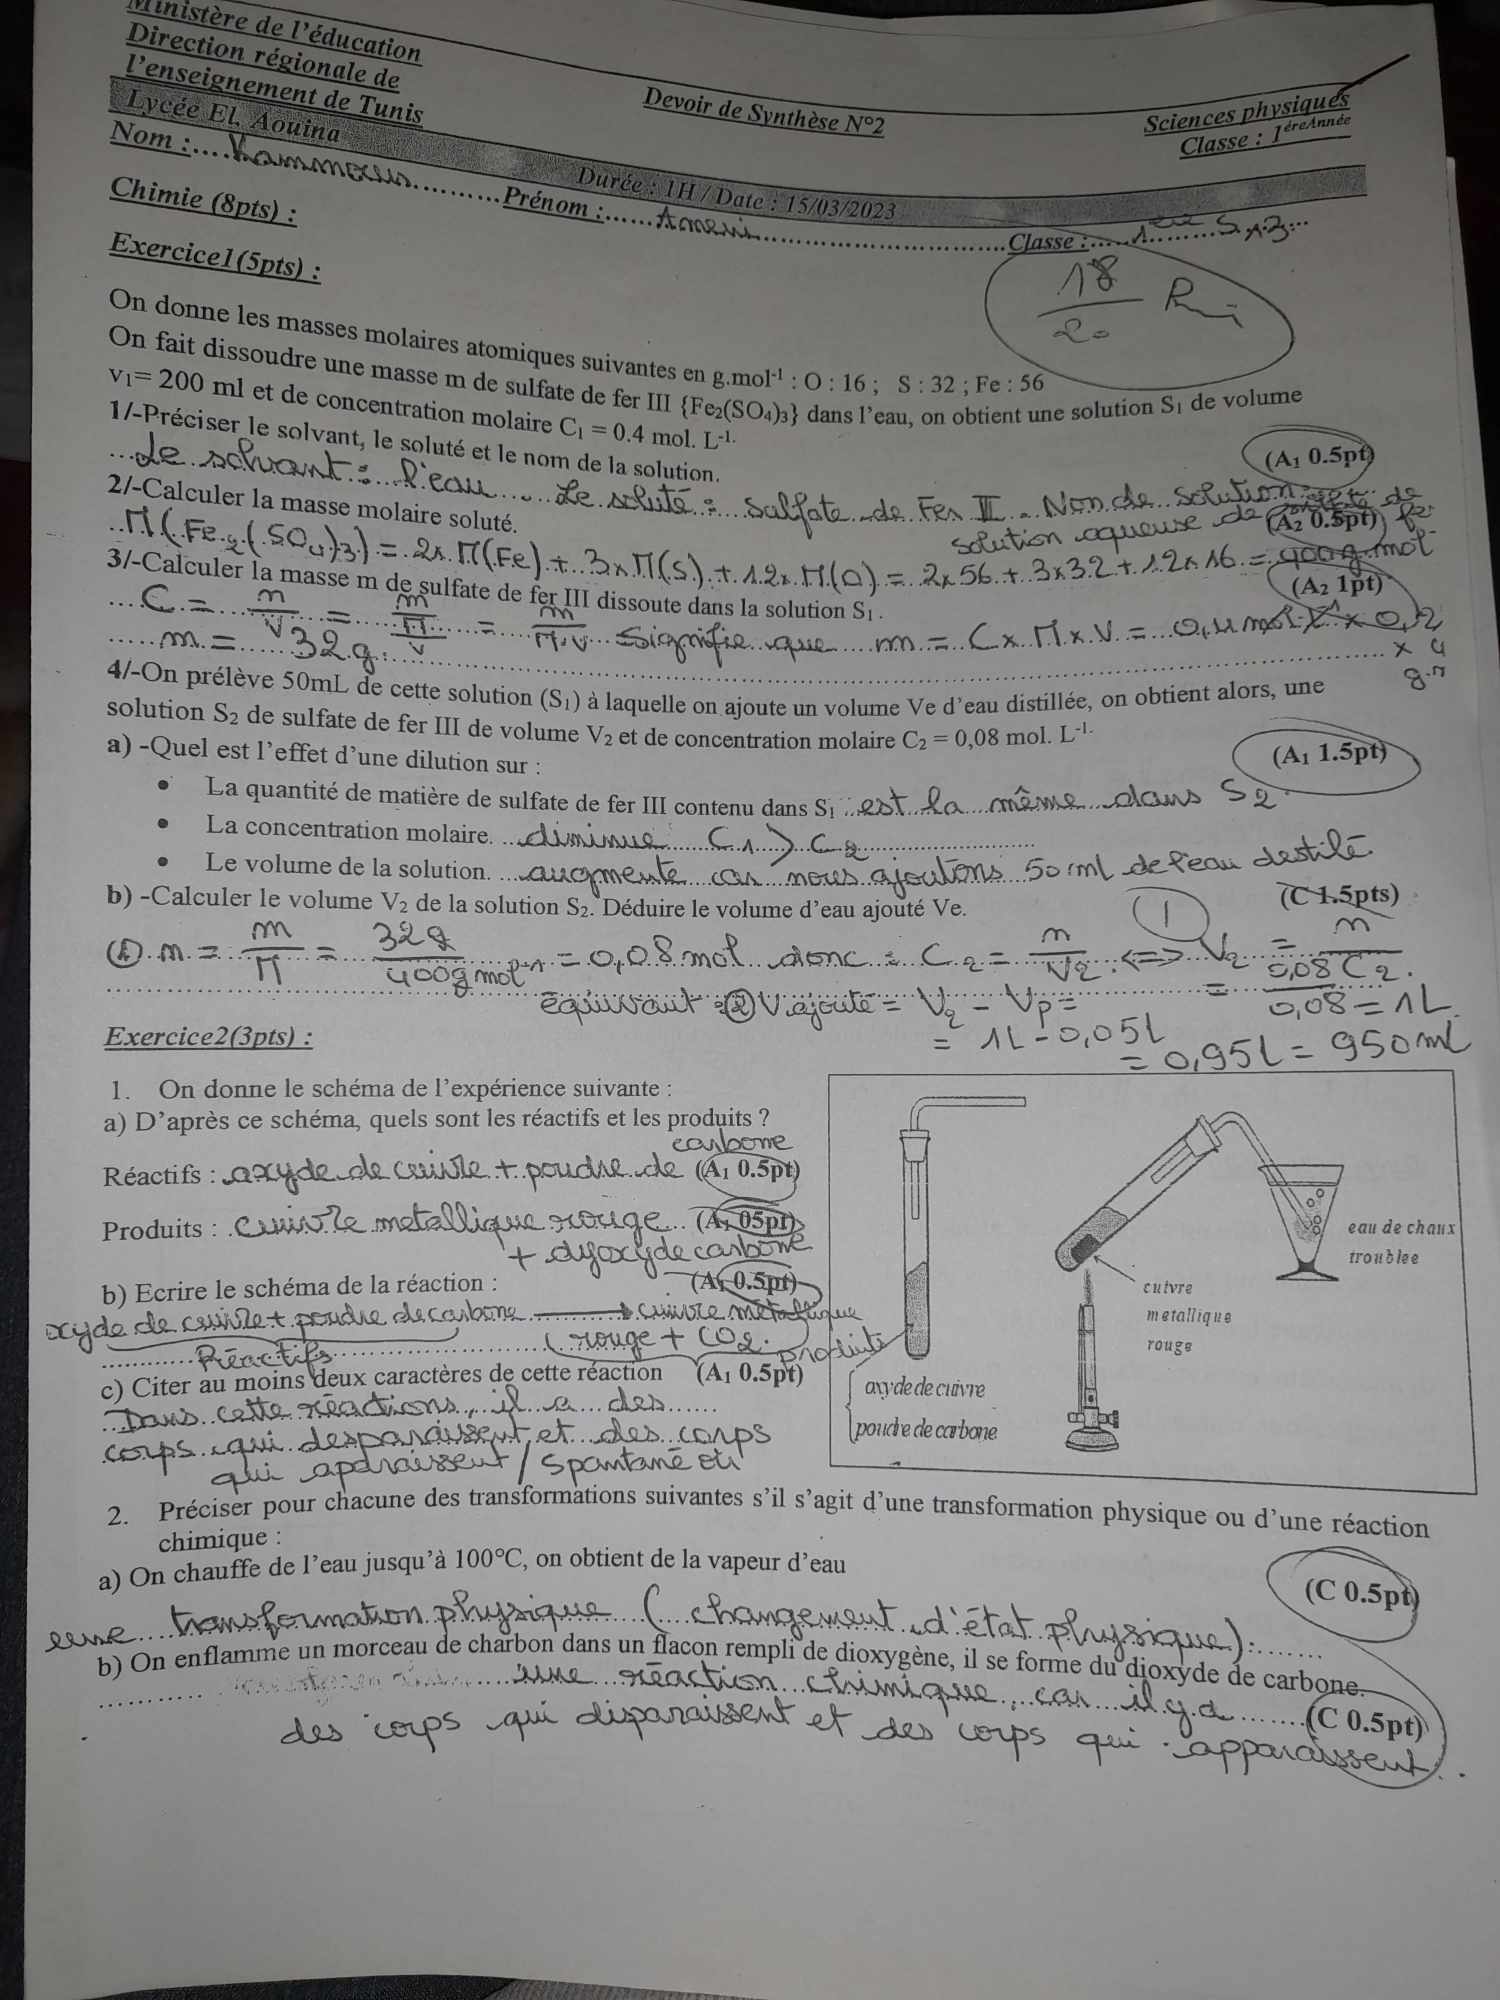 Ministère de l'éducation
Direction régionale de
l'enseignement de Tunis
Lycée El Aouina
Devoir de Synthèse N°2
Sciences physiques
Classe : 1éreAnnée
Durée : 1H / Date : 15/03/2023
Nom :....Kammoun..........Prénom :......Ameni..............................Classe :.....1ère S.1.3...
Chimie (8pts) :
18/20
Exercice1(5pts) :
On donne les masses molaires atomiques suivantes en g.mol-1 : O : 16 ; S : 32 ; Fe : 56
On fait dissoudre une masse m de sulfate de fer III {Fe2(SO4)3} dans l'eau, on obtient une solution S1 de volume
v1= 200 ml et de concentration molaire C1 = 0.4 mol. L-1.
1/-Préciser le solvant, le soluté et le nom de la solution. (A1 0.5pt)
Le solvant : l'eau. Le soluté : sulfate de Fer III. Nom de solution :
solution aqueuse de sulfate de fer
2/-Calculer la masse molaire soluté. (A2 0.5pt)
M(Fe2(SO4)3) = 2x M(Fe) + 3x M(S) + 12x M(O) = 2x56 + 3x32 + 12x16 = 400g.mol
3/-Calculer la masse m de sulfate de fer III dissoute dans la solution S1. (A2 1pt)
C = n/V = m/M/V = m/M.V signifie que m = C x M x V = 0,4 mol.L-1 x 0,2
x 4
m = 32g.
4/-On prélève 50mL de cette solution (S1) à laquelle on ajoute un volume Ve d'eau distillée, on obtient alors, une
solution S2 de sulfate de fer III de volume V2 et de concentration molaire C2 = 0,08 mol. L-1.
a) -Quel est l'effet d'une dilution sur : (A1 1.5pt)
• La quantité de matière de sulfate de fer III contenu dans S1 est la même dans S2.
• La concentration molaire. diminue C1 > C2
• Le volume de la solution. augmente car nous ajoutons 50 ml de l'eau destilé.
b) -Calculer le volume V2 de la solution S2. Déduire le volume d'eau ajouté Ve. (C 1.5pts)
1
① n = m/M = 32g/400g mol-1 = 0,08 mol donc : C2 = n/V2 <=> V2 = n/C2.
équivaut = 0,08/0,08 = 1L.
② V ajouté = V2 - Vp =
= 1L - 0,05L
= 0,95L = 950 ml
Exercice2(3pts) :
1. On donne le schéma de l'expérience suivante :
a) D'après ce schéma, quels sont les réactifs et les produits ?
Réactifs : oxyde de cuivre + poudre de carbone (A1 0.5pt)
Produits : cuivre metallique rouge (A1 05pt)
+ dyoxyde carbone
b) Ecrire le schéma de la réaction : (A1 0.5pt)
oxyde de cuivre + poudre de carbone → cuivre métallique
rouge + CO2.
Réactifs produits
c) Citer au moins deux caractères de cette réaction (A1 0.5pt)
Dans cette réactions, il a des
corps qui desparaissent et des corps
qui aparaissent / Spontané ou
eau de chaux
troublee
cuivre
metallique
rouge
oxyde de cuivre
poudre de carbone
2. Préciser pour chacune des transformations suivantes s'il s'agit d'une transformation physique ou d'une réaction
chimique :
a) On chauffe de l'eau jusqu'à 100°C, on obtient de la vapeur d'eau (C 0.5pt)
une transformation physique (changement d'état physique).
b) On enflamme un morceau de charbon dans un flacon rempli de dioxygène, il se forme du dioxyde de carbone.
une réaction chimique, car il y a (C 0.5pt)
des corps qui disparaissent et des corps qui apparaissent.